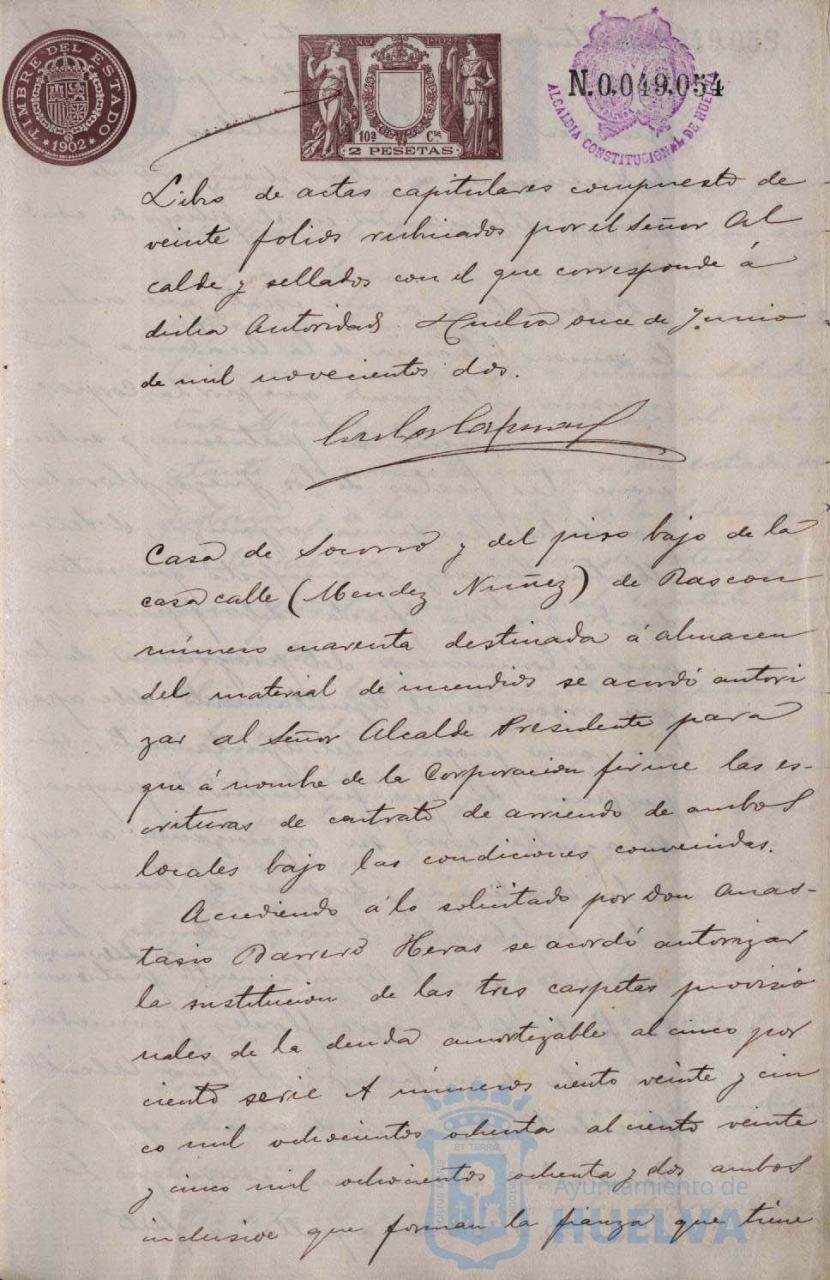 TIMBRE DEL ESTADO
*1902*
AÑO 1902
10ª Cse
2 PESETAS
N.0.049.054
ALCALDIA CONSTITUCIONAL DE HUELVA
Libro de actas capitulares compuesto de
veinte folios rubricados por el Señor Al
calde y sellados con el que corresponde á
dicha Autoridad. Huelva once de Junio
de mil novecientos dos.
Casa de Socorro y del piso bajo de la
casa calle (Mendez Nuñez) de Rascon
número cuarenta destinada á almacen
del material de incendios se acordó autori
zar al Señor Alcalde Presidente para
que á nombre de la Corporacion firme las es-
crituras de contrato de arriendo de ambos
locales bajo las condiciones convenidas.
Acudiendo á lo solicitado por Don Anas-
tasio Barrero Heras se acordó autorizar
la sustitucion de las tres carpetas provisio
nales de la deuda amortizable al cinco por
ciento serie A números ciento veinte y cin
co mil ochocientos ochenta al ciento veinte
y cinco mil ochocientos ochenta y dos ambos
inclusive que forman la fianza que tiene
ET TERRA
Ayuntamiento de
HUELVA